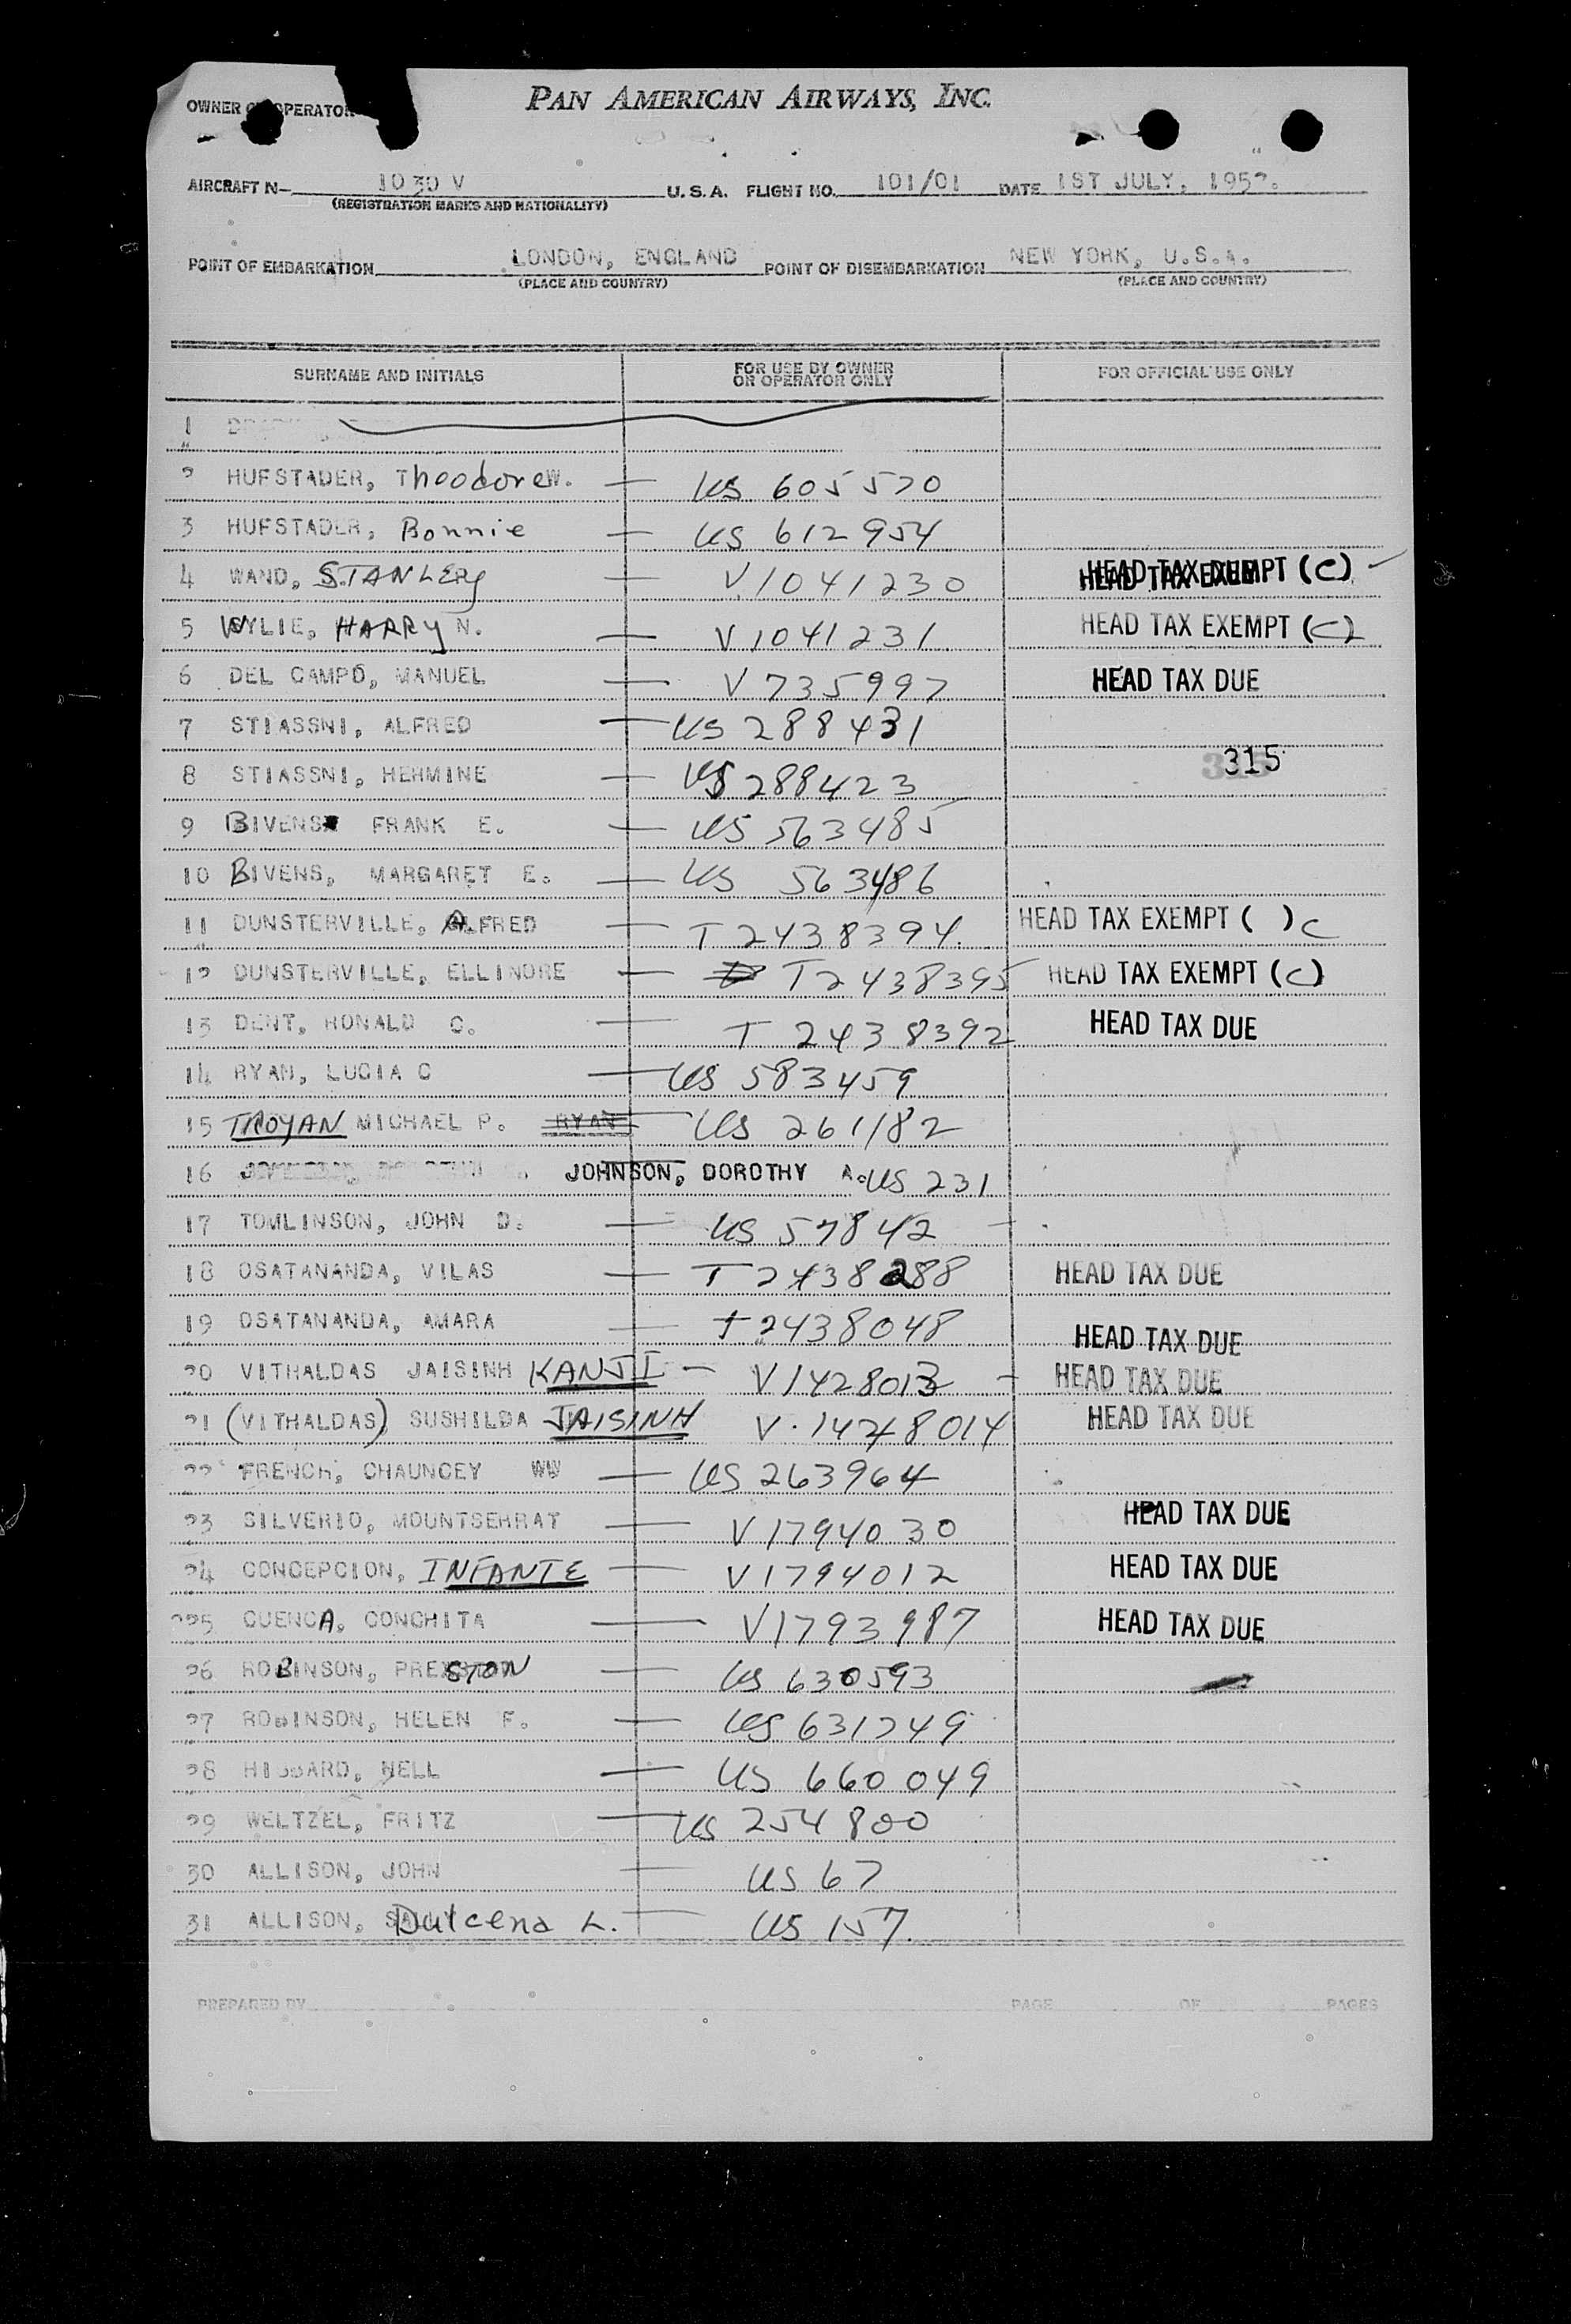 PAN AMERICAN AIRWAYS, INC.
OWNER OPERATOR
AIRCRAFT N- 1030 V U.S.A. FLIGHT NO. 101/01 DATE 1ST JULY,
(REGISTRATION MARKS AND NATIONALITY)
POINT OF EMBARKATION LONDON, ENGLAND POINT OF DISEMBARKATION NEW YORK, U.S.A.
(PLACE AND COUNTRY) (PLACE AND COUNTRY)
SURNAME AND INITIALS FOR USE BY OWNER OR OPERATOR ONLY FOR OFFICIAL USE ONLY
1
2 HUFSTADER, Theodore W. — US 605570
3 HUFSTADER, Bonnie — US 612954
4 WAND, STANLEY — V 1041230 HEAD TAX EXEMPT (C)
5 WYLIE, HARRY N. — V 1041231 HEAD TAX EXEMPT (C)
6 DEL CAMPO, MANUEL — V 735997 HEAD TAX DUE
7 STIASSNI, ALFRED — US 288431
8 STIASSNI, HERMINE — US 288423 315
9 BIVENS FRANK E. — US 563485
10 BIVENS, MARGARET E. — US 563486
11 DUNSTERVILLE, ALFRED — T 2438394. HEAD TAX EXEMPT ( ) C
12 DUNSTERVILLE, ELLINORE — T 2438395 HEAD TAX EXEMPT (C)
13 DENT, RONALD C. — T 2438392 HEAD TAX DUE
14 RYAN, LUCIA C — US 583459
15 TROYAN MICHAEL P. RYAN — US 261182
16 JOHNSON, DOROTHY A. US 231
17 TOMLINSON, JOHN D. — US 57842 —
18 OSATANANDA, VILAS — T 2438288 HEAD TAX DUE
19 OSATANANDA, AMARA — T 2438048 HEAD TAX DUE
20 VITHALDAS JAISINH KANJI — V 1428013 — HEAD TAX DUE
21 (VITHALDAS) SUSHILDA JAISINH V. 1428014 HEAD TAX DUE
22 FRENCH, CHAUNCEY WW — US 263964
23 SILVERIO, MOUNTSERRAT — V 1794030 HEAD TAX DUE
24 CONCEPCION, INFANTE — V 1794012 HEAD TAX DUE
25 CUENCA, CONCHITA — V 1793987 HEAD TAX DUE
26 ROBINSON, PRESTON — US 630593
27 ROBINSON, HELEN F. — US 631249
28 HIBBARD, NELL — US 660049
29 WELTZEL, FRITZ — US 254800
30 ALLISON, JOHN — US 67
31 ALLISON, Dulcena L. — US 157.
PREPARED BY PAGE OF PAGES